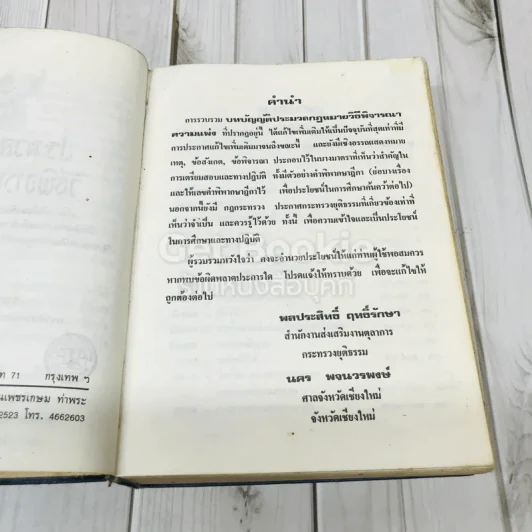 คำนำ
การรวบรวม บทบัญญัติประมวลกฎหมายวิธีพิจารณา
ความแพ่ง ที่ปรากฏอยู่นี้ ได้แก้ไขเพิ่มเติมให้เป็นปัจจุบันที่สุดเท่าที่มี
การประกาศแก้ไขเพิ่มเติมมาจนถึงขณะนี้ และยังมีเชิงอรรถแสดงหมาย
เหตุ, ข้อสังเกต, ข้อพิจารณา ประกอบไว้ในบางมาตราที่เห็นว่าสำคัญใน
การเตรียมสอบและทางปฏิบัติ ทั้งมีตัวอย่างคำพิพากษาฎีกา (ย่อบางเรื่อง
และให้เลขคำพิพากษาฎีกาไว้ เพื่อประโยชน์ในการศึกษาค้นคว้าต่อไป)
นอกจากนี้ยังมี กฎกระทรวง ประกาศกระทรวงยุติธรรมที่เกี่ยวข้องเท่าที่
เห็นว่าจำเป็น และควรรู้ไว้ด้วย ทั้งนี้ เพื่อความเข้าใจและเป็นประโยชน์
ในการศึกษาและทางปฏิบัติ
ผู้รวบรวมหวังใจว่า คงจะอำนวยประโยชน์ให้แก่ท่านผู้ใช้พอสมควร
หากพบข้อผิดพลาดประการใด โปรดแจ้งให้ทราบด้วย เพื่อจะแก้ไขให้
ถูกต้องต่อไป
พลประสิทธิ์ ฤทธิ์รักษา
สำนักงานส่งเสริมงานตุลาการ
กระทรวงยุติธรรม
นคร พจนวรพงษ์
ศาลจังหวัดเชียงใหม่
จังหวัดเชียงใหม่
71 กรุงเทพ ฯ
นเพชรเกษม ท่าพระ
2523 โทร. 4662603